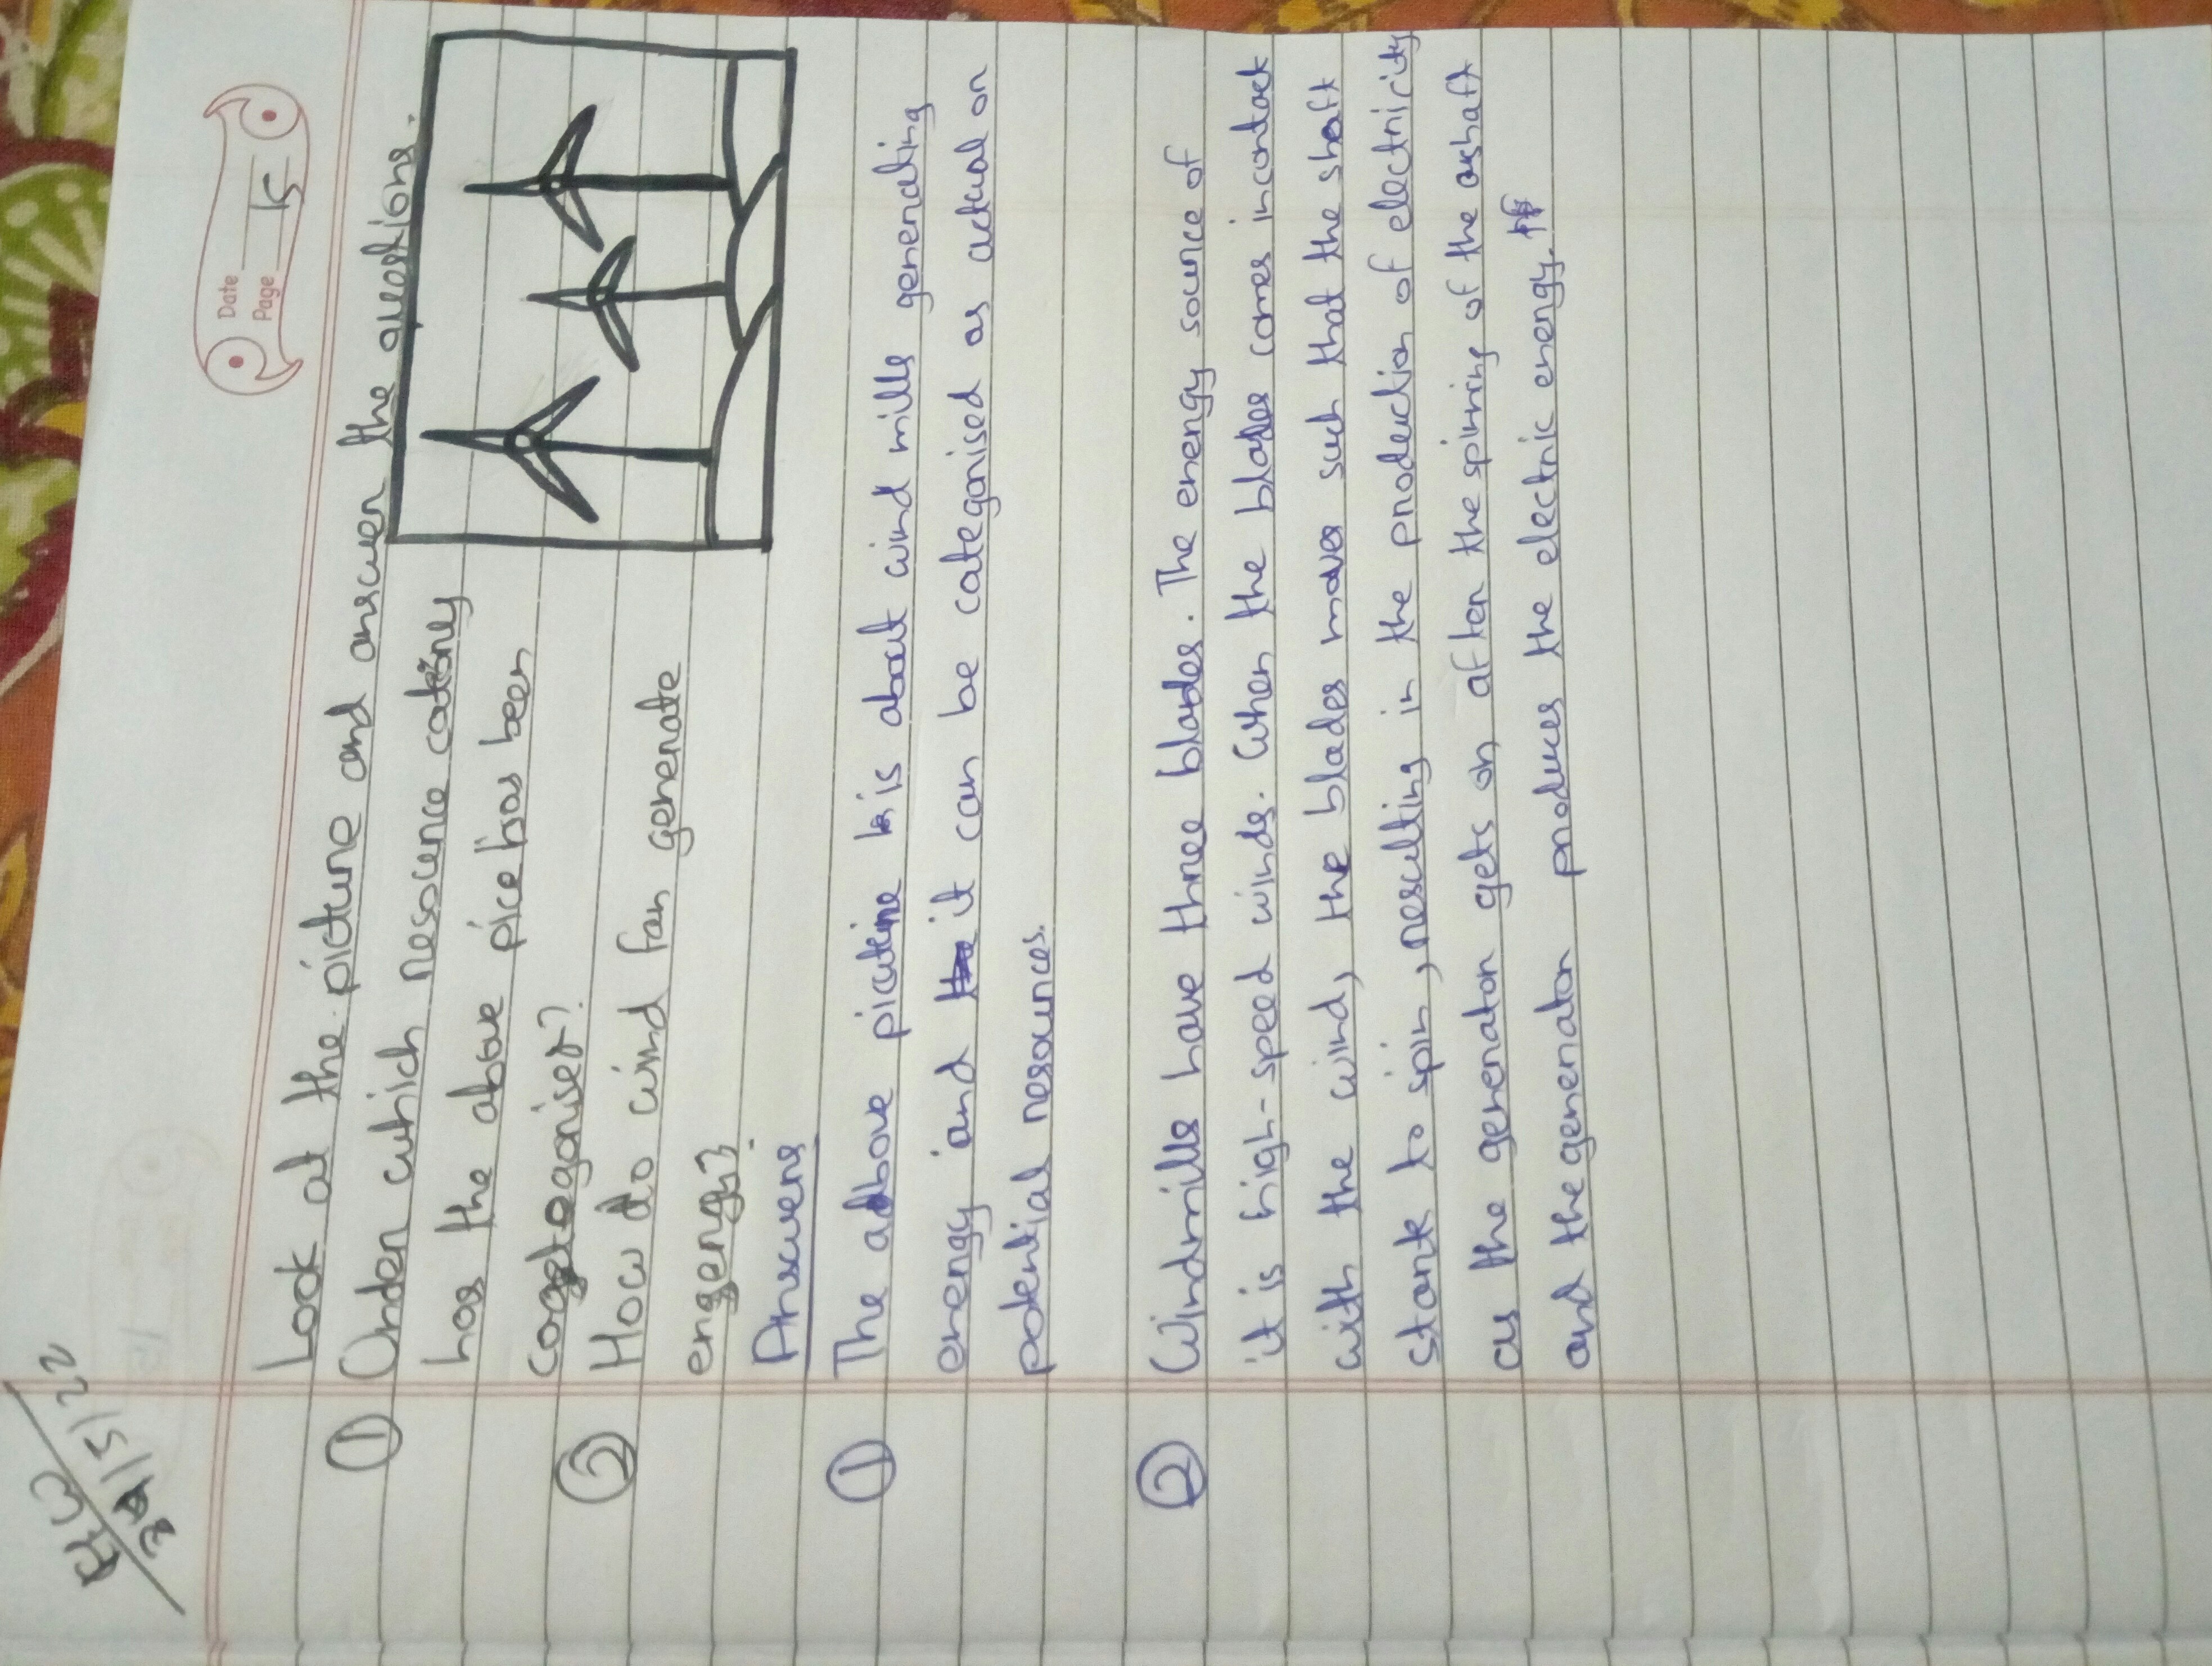 HW
30/5/22
Date
Page 15
Look at the picture and answer the questions.
① Under which resource catory
has the above pice has been
categoriser?
② How do wind fan generate
engergy?
Answers
① The above picuture is about wind mills generating
energy and it can be categorised as actual or
potential resources.
② Windmills have three blades. The energy source of
it is high-speed winds. When the blades comes incontack
with the wind, the blades moves such that the shaft
stark to spin, resulting in the production of electricity
as the generator gets on after the spining of the ashaft
and the generator produces the electric energy.